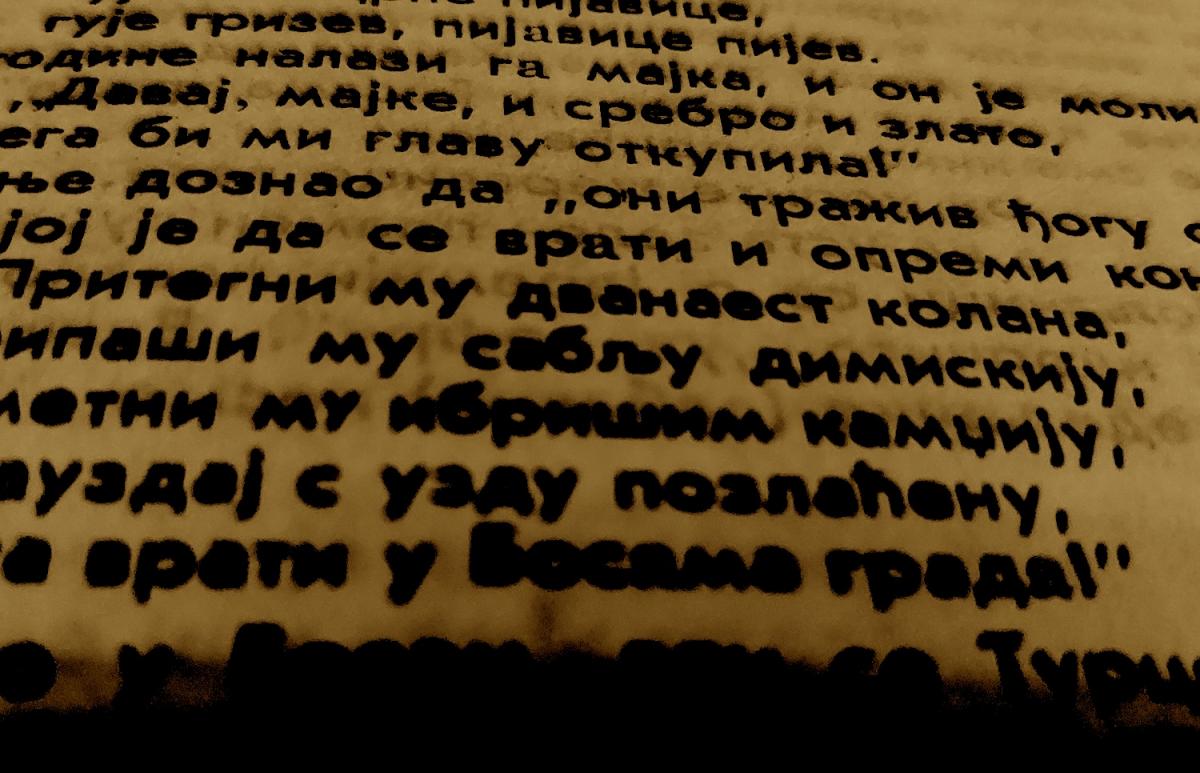 пијавице,
гује гризев, пијавице пијев.
године налази га мајка, и он је моли
„Давај, мајке, и сребро и злато,
би ми главу откупила!"
дозна́о да „они тражив ђогу
је да се врати и опреми
Притегни му дванаест колана,
му сабљу димискију,
му ибришим камџију,
с узду позлаћену,
врати у Босама града!"
у